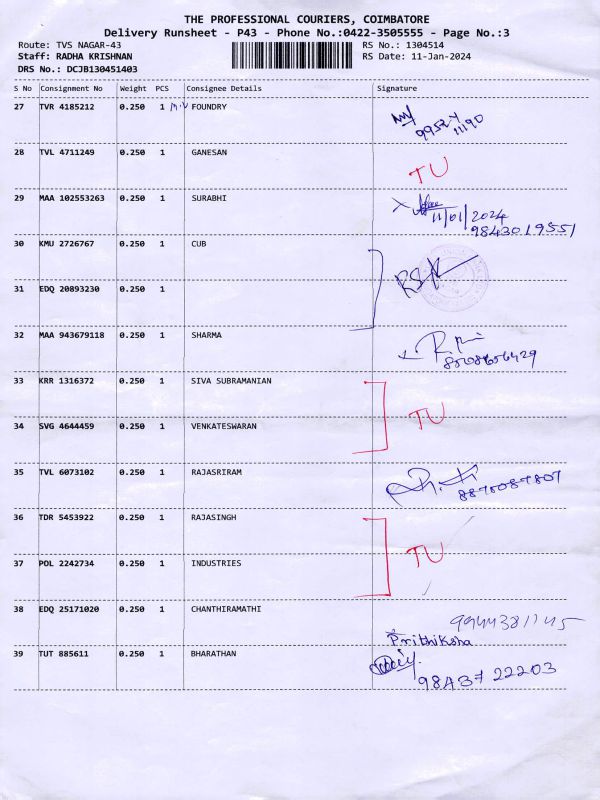 THE PROFESSIONAL COURIERS, COIMBATORE
Delivery Runsheet - P43 - Phone No.:0422-3505555 - Page No.:3
Route: TVS NAGAR-43 RS No.: 1304514
Staff: RADHA KRISHNAN RS Date: 11-Jan-2024
DRS No.: DCJB130451403
S No Consignment No Weight PCS Consignee Details Signature
27 TVR 4185212 0.250 1 M.V FOUNDRY
99524
11190
28 TVL 4711249 0.250 1 GANESAN TU
29 MAA 102553263 0.250 1 SURABHI
11/01/2024
9843019551
30 KMU 2726767 0.250 1 CUB
31 EDQ 20893230 0.250 1
32 MAA 943679118 0.250 1 SHARMA
8508656429
33 KRR 1316372 0.250 1 SIVA SUBRAMANIAN
TU
34 SVG 4644459 0.250 1 VENKATESWARAN
35 TVL 6073102 0.250 1 RAJASRIRAM
8870087807
36 TDR 5453922 0.250 1 RAJASINGH
TU
37 POL 2242734 0.250 1 INDUSTRIES
38 EDQ 25171020 0.250 1 CHANTHIRAMATHI
9944381145
Prithiksha
39 TUT 885611 0.250 1 BHARATHAN
98437 22203